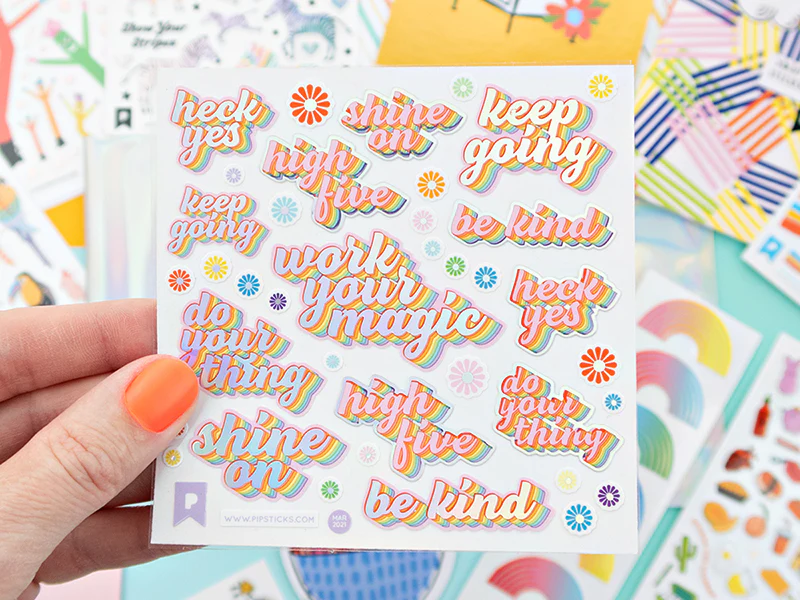 Show Your
Stripes
heck
yes
shine
on
keep
going
high
five
keep
going
be kind
work
your
magic
heck
yes
do
your
thing
high
five
do
your
thing
shine
on
be kind
WWW.PIPSTICKS.COM
MAR
2021